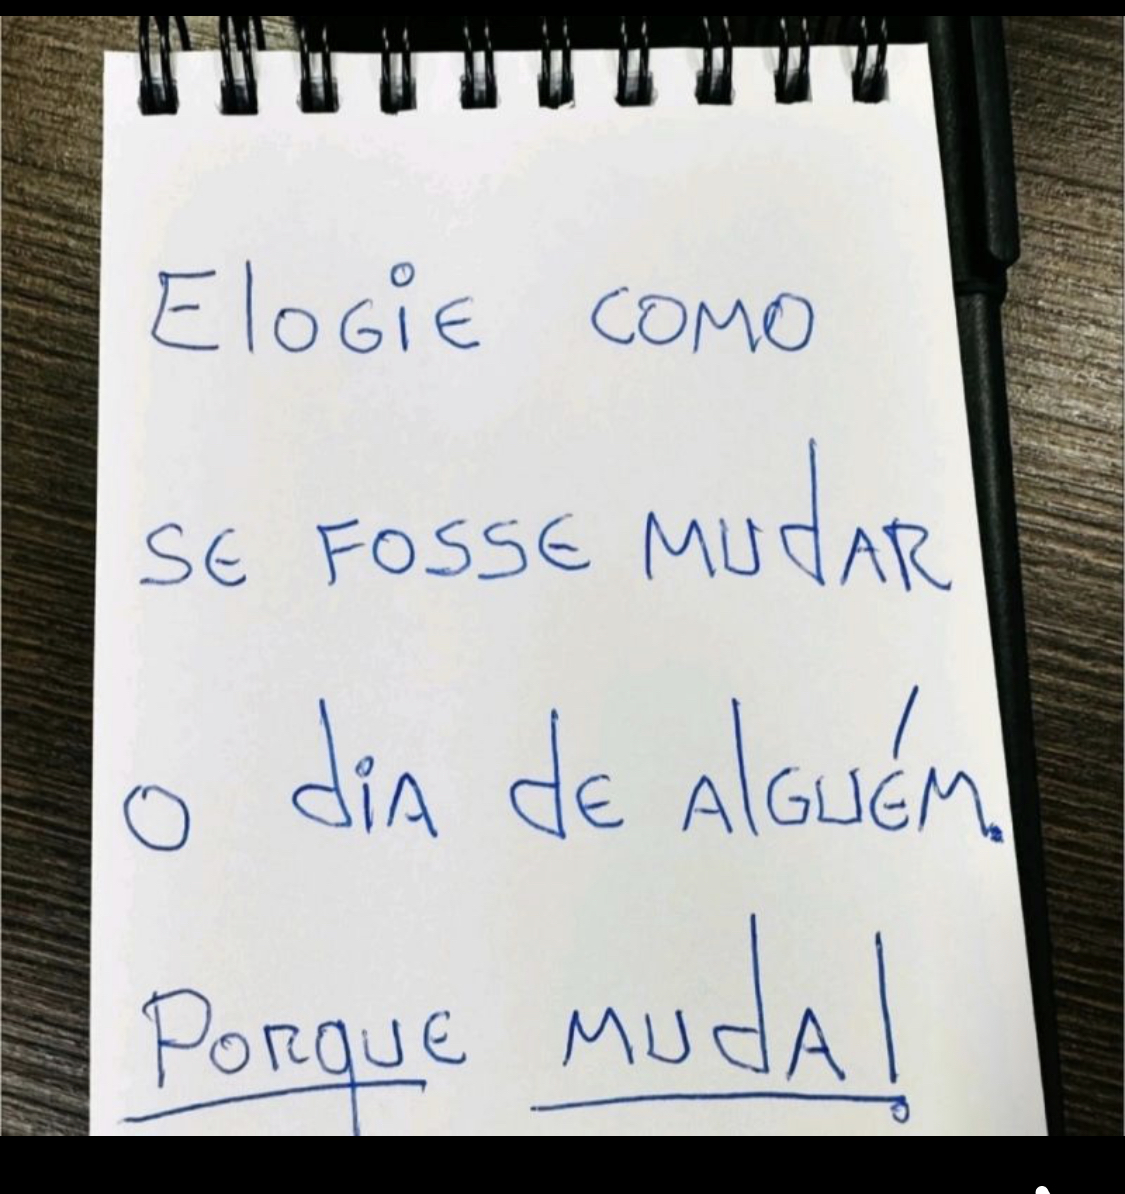 Elogie como
se fosse mudar
o dia de alguém.
Porque muda!